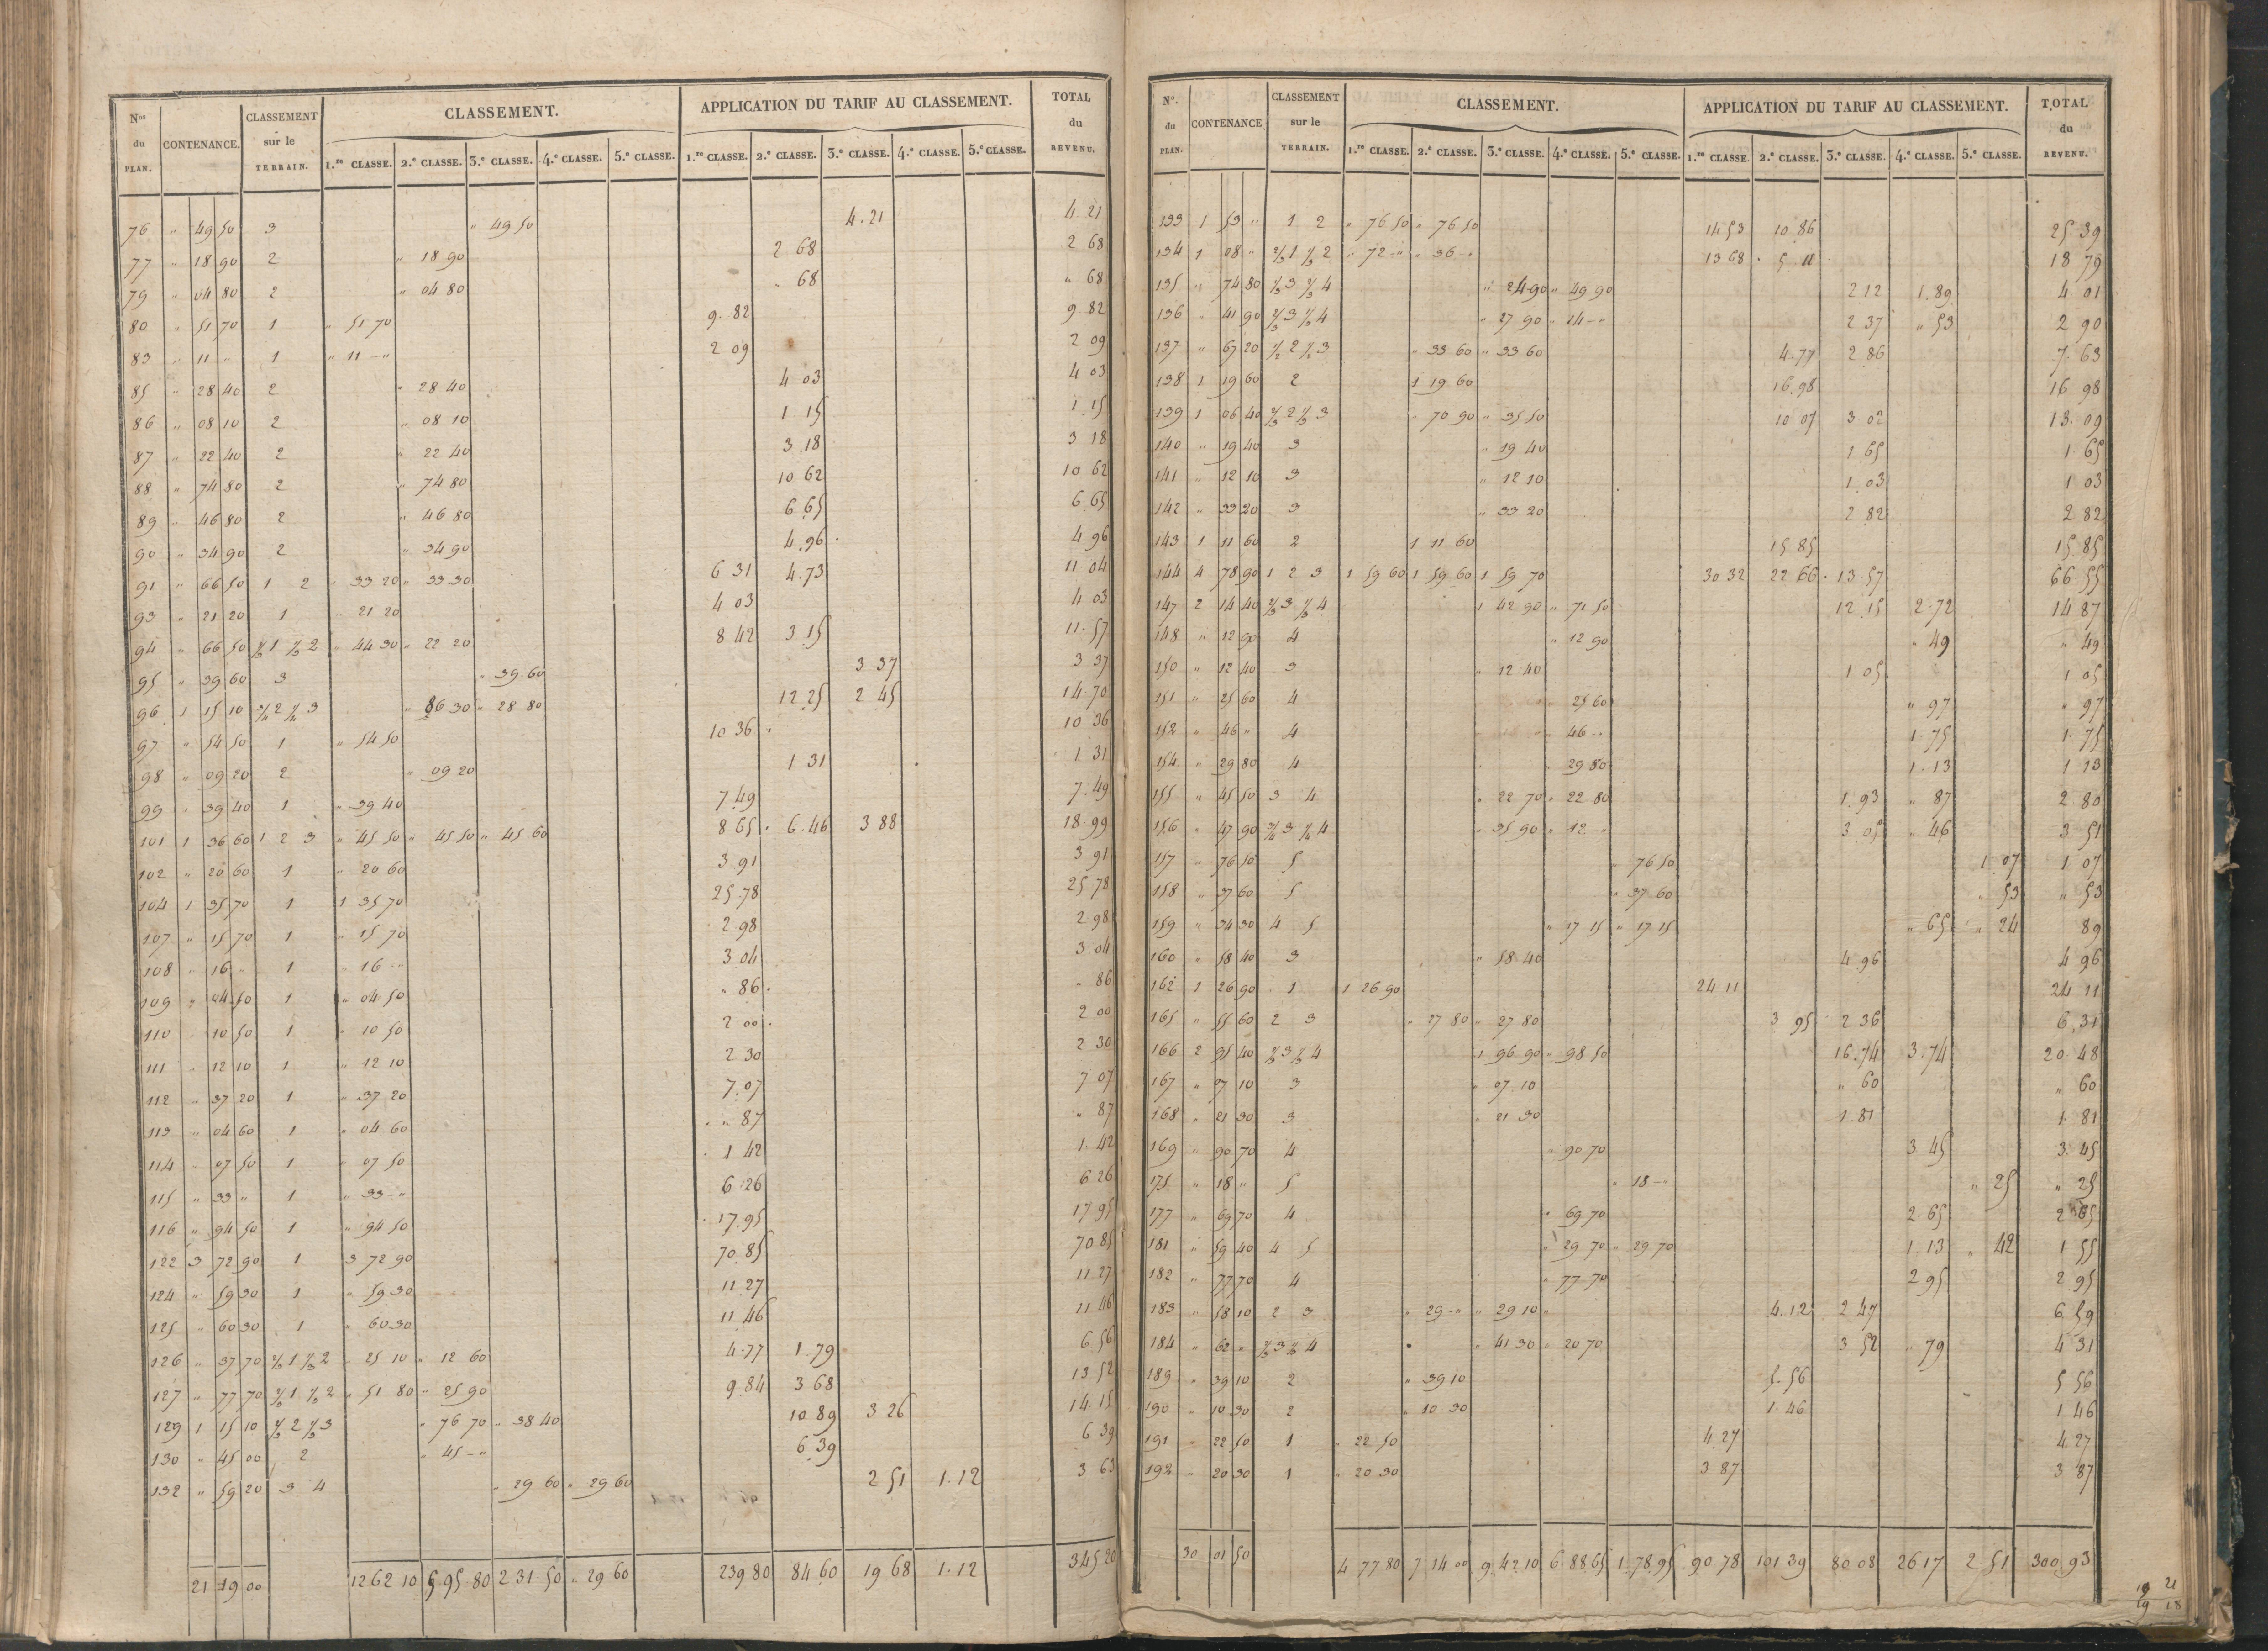 Nos du PLAN. CONTENANCE. CLASSEMENT sur le TERRAIN. CLASSEMENT. APPLICATION DU TARIF AU CLASSEMENT. TOTAL du REVENU.
1.re CLASSE. 2.e CLASSE. 3.e CLASSE. 4.e CLASSE. 5.e CLASSE. 1.re CLASSE. 2.e CLASSE. 3.e CLASSE. 4.e CLASSE. 5.e CLASSE.
76 " 49 50 3 " 49 50 4.21 4 21
77 " 18 90 2 " 18 90 2 68 2 68
79 " 04 80 2 " 04 80 " 68 " 68
80 " 51 70 1 " 51 70 9.82 9 82
83 " 11 " 1 " 11 - " 2 09 2 09
85 " 28 40 2 " 28 40 4 03 4 03
86 " 08 10 2 " 08 10 1 15 1 15
87 " 22 40 2 " 22 40 3 18 3 18
88 " 74 80 2 " 74 80 10 62 10 62
89 " 46 80 2 " 46 80 6 65 6 65
90 " 34 90 2 " 34 90 4.96 4 96
91 " 66 50 1 2 " 33 20 " 33 30 6 31 4.73 11 04
93 " 21 20 1 " 21 20 4 03 4 03
94 " 66 50 2/3 1 1/3 2 " 44 30 " 22 20 8 42 3 15 11.57
95 " 39 60 3 " 39.60 3 37 3 37
96 1 15 10 3/4 2 1/4 3 " 86 30 " 28 80 12 25 2 45 14.70
97 " 54 50 1 " 54 50 10 36 10 36
98 " 09 20 2 " 09 20 1 31 1 31
99 " 39 40 1 " 39 40 7.49 7.49
101 1 36 60 1 2 3 " 45 50 " 45 50 " 45 60 8 65 6.46 3 88 18.99
102 " 20 60 1 " 20 60 3 91 3 91
104 1 35 70 1 1 35 70 25.78 25 78
107 " 15 70 1 " 15 70 2.98 2.98
108 " 16 " 1 " 16 - " 3 04 3 04
109 " 04 50 1 " 04 50 " 86 " 86
110 " 10 50 1 " 10 50 2 00 2 00
111 " 12 10 1 " 12 10 2 30 2 30
112 " 37 20 1 " 37 20 7.07 7 07
113 " 04 60 1 " 04 60 " 87 " 87
114 " 07 50 1 " 07 50 1 42 1.42
115 " 33 " 1 " 33 - " 6 26 6 26
116 " 94 50 1 " 94 50 17.95 17 95
122 3 72 90 1 3 72 90 70.85 70 85
124 " 59 30 1 " 59 30 11 27 11 27
125 " 60 30 1 " 60 30 11 46 11 46
126 " 37 70 2/3 1 1/3 2 " 25 10 " 12 60 4.77 1.79 6 56
127 " 77 70 2/3 1 1/3 2 " 51 80 " 25 90 9 84 3 68 13 52
129 1 15 10 2/3 2 1/3 3 " 76 70 " 38 40 10 89 3 26 14 15
130 " 45 00 2 " 45 - " 6 39 6 39
132 " 59 20 3 4 " 29 60 " 29 60 2 51 1.12 3 63
21 19 00 12 62 10 5 95 80 2 31 50 " 29 60 239 80 84 60 19 68 1.12 345 20
No. du PLAN. CONTENANCE CLASSEMENT sur le TERRAIN. CLASSEMENT. APPLICATION DU TARIF AU CLASSEMENT. TOTAL du REVENU.
1.re CLASSE. 2.e CLASSE. 3.e CLASSE. 4.e CLASSE. 5.e CLASSE. 1.re CLASSE. 2.e CLASSE. 3.e CLASSE. 4.e CLASSE. 5.e CLASSE.
133 1 53 " 1 2 " 76 50 " 76 50 14 53 10 86 25 39
134 1 08 " 2/3 1 1/3 2 " 72 - " " 36 - " 13 68 5 11 18 79
135 " 74 80 1/3 3 2/3 4 " 24 90 " 49 90 2 12 1.89 4 01
136 " 41 90 2/3 3 1/3 4 " 27 90 " 14 - " 2 37 " 53 2 90
137 " 67 20 1/2 2 1/2 3 " 33 60 " 33 60 4.77 2 86 7.63
138 1 19 60 2 1 19 60 16.98 16 98
139 1 06 40 2/3 2 1/3 3 " 70 90 " 35 50 10 07 3 02 13.09
140 " 19 40 3 " 19 40 1 65 1 65
141 " 12 10 3 " 12 10 1.03 1 03
142 " 33 20 3 " 33 20 2 82 2 82
143 1 11 60 2 1 11 60 15 85 15 85
144 4 78 90 1 2 3 1 59 60 1 59 60 1 59 70 30 32 22 66 13.57 66 55
147 2 14 40 2/3 3 1/3 4 1 42 90 " 71 50 12 15 2.72 14 87
148 " 12 90 4 " 12 90 " 49 " 49
150 " 12 40 3 " 12 40 1 05 1 05
151 " 25 60 4 " 25 60 " 97 " 97
152 " 46 " 4 " 46 - " 1.75 1.75
154 " 29 80 4 " 29 80 1.13 1 13
155 " 45 50 3 4 " 22 70 " 22 80 1.93 " 87 2 80
156 " 47 90 3/4 3 1/4 4 " 35 90 " 12 - " 3 05 " 46 3 51
157 " 76 50 5 " 76 50 1 07 1 07
158 " 37 60 5 " 37 60 " 53 " 53
159 " 34 30 4 5 " 17 15 " 17 15 " 65 " 24 89
160 " 58 40 3 " 58 40 4 96 4 96
162 1 26 90 1 1 26 90 24 11 24 11
165 " 55 60 2 3 " 27 80 " 27 80 3 95 2 36 6 31
166 2 95 40 2/3 3 1/3 4 1 96 90 " 98 50 16.74 3.74 20.48
167 " 07 10 3 " 07.10 " 60 " 60
168 " 21 30 3 " 21 30 1.81 1.81
169 " 90 70 4 " 90 70 3 45 3.45
175 " 18 " 5 " 18 - " " 25 " 25
177 " 69 70 4 " 69 70 2.65 2 65
181 " 59 40 4 5 " 29 70 " 29.70 1 13 " 42 1 55
182 " 77 70 4 " 77 70 2 95 2 95
183 " 58 10 2 3 " 29 - " " 29 10 4.12 2 47 6 59
184 " 62 " 2/3 3 1/3 4 " 41 30 " 20 70 3 52 " 79 4 31
189 " 39 10 2 " 39 10 5.56 5 56
190 " 10 30 2 " 10 30 1.46 1 46
191 " 22 50 1 " 22 50 4.27 4.27
192 " 20 30 1 " 20 30 3 87 3 87
30 01 50 4 77 80 7 14 00 9 42 10 6 88 65 1.78.95 90 78 101 39 80 08 26 17 2 51 300 93